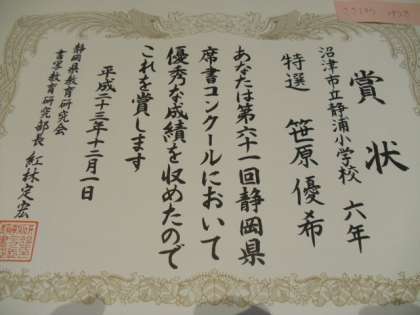 賞状
沼津市立静浦小学校 六年
特選 笹原優希
あなたは第六十一回静岡県
席書コンクールにおいて
優秀な成績を収めたので
これを賞します
平成二十三年十二月一日
静岡県教育研究会
書写教育研究部長 紅林定宏